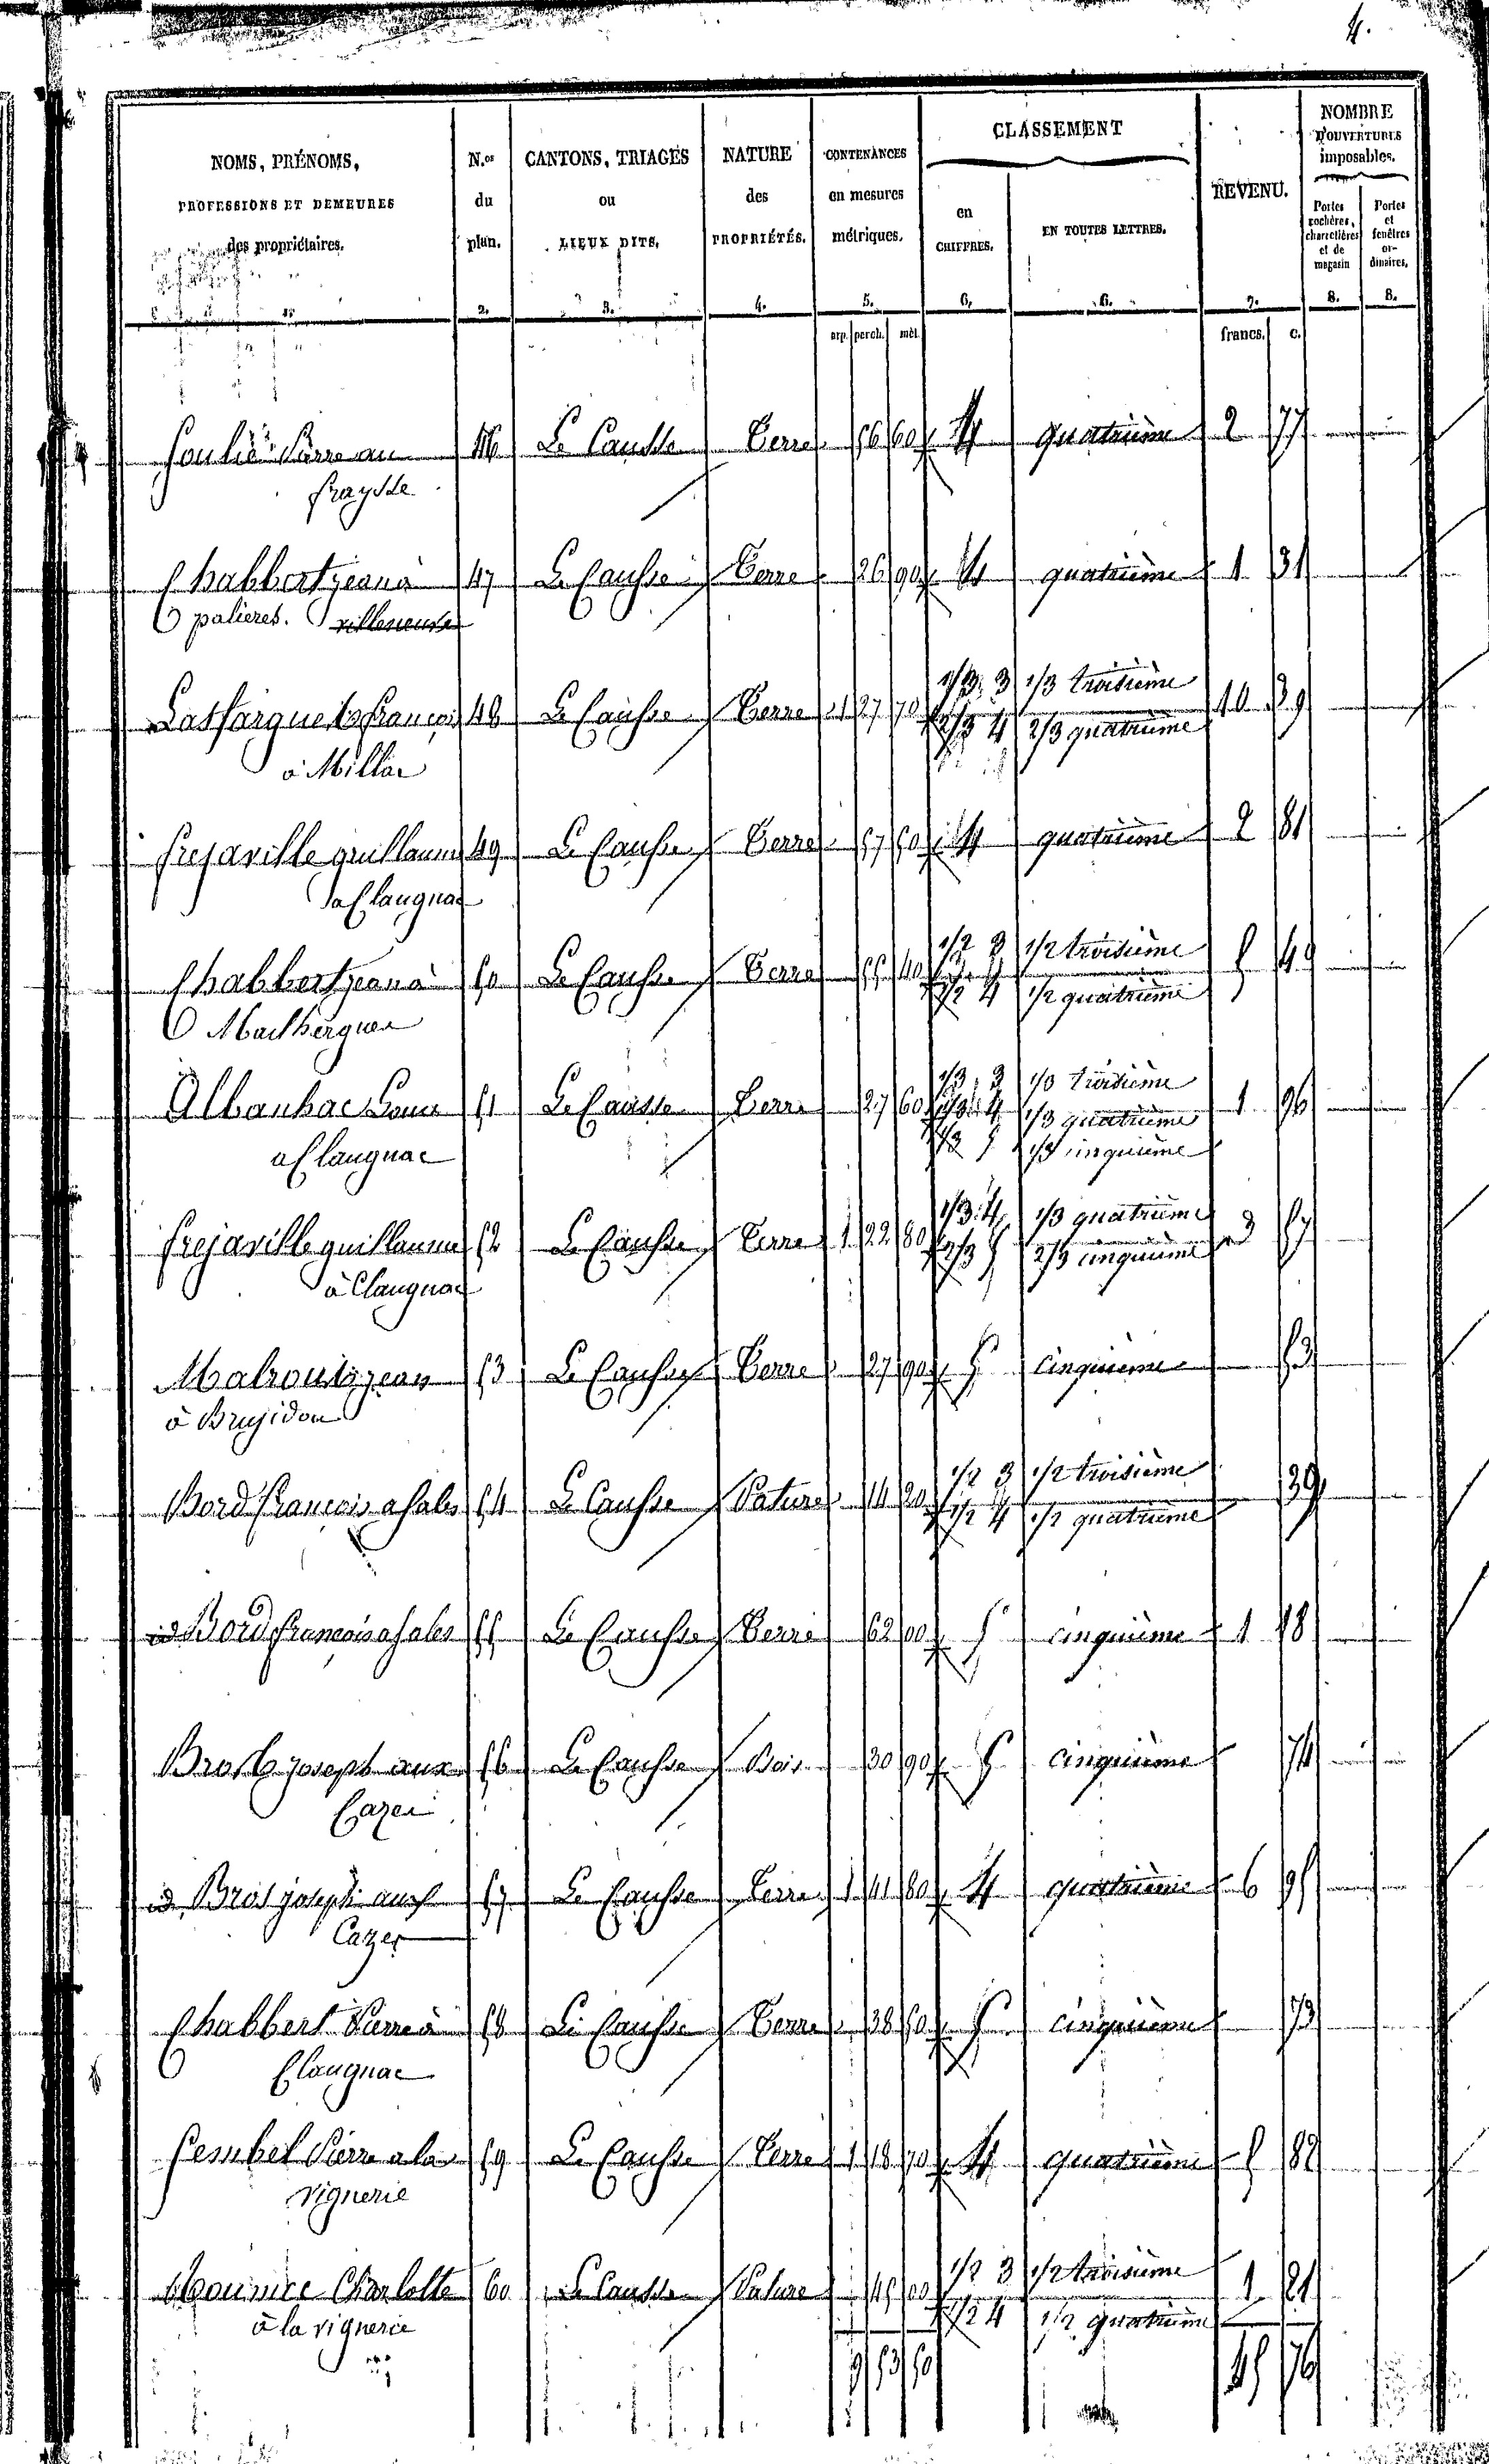 4.
NOMS, PRÉNOMS, N.os CANTONS, TRIAGES NATURE CONTENANCES CLASSEMENT REVENU. NOMBRE D'OUVERTURES imposables.
PROFESSIONS ET DEMEURES du ou des en mesures en EN TOUTES LETTRES. Portes cochères, charretières et de magasin Portes et fenêtres ordinaires.
des propriétaires. plan. LIEUX DITS. PROPRIÉTÉS. métriques. CHIFFRES.
1. 2. 3. 4. 5. 6. 6. 7. 8. 8.
arp. perch. mèt. francs. c.
Soulié Pierre au 46 Le Causse Terre 56 60 4 quatrième 2 77
fraysse
Chabbert jean à 47 Le Causse Terre 26 90 4 quatrième 1 31
palières. villeneuve
Lassarguette françois 48 Le Causse Terre 1 27 70 1/3 3 1/3 troisième 10 39
2/3 4 2/3 quatrième
à Millar
frejaville guillaume 49 Le Causse Terre 57 50 4 quatrième 2 81
a Claugnac
Chabbert jean à 50 Le Causse Terre 55 40 1/2 3 1/2 troisième 5 49
1/2 4 1/2 quatrième
Mailhergues
Albanhac 51 Le Causse Terre 27 60 1/3 3 1/3 troisième 1 96
1/3 4 1/3 quatrième
1/3 5 1/3 cinquième
a Claugnac
frejaville guillaume 52 Le Causse Terre 1 22 80 1/3 4 1/3 quatrième 3 57
2/3 5 2/3 cinquième
à Claugnac
jean 53 Le Causse Terre 27 90 5 cinquième 53
à Brugidou
Bord françois a sales 54 Le Causse Pature 14 20 1/2 3 1/2 troisième 39
1/2 4 1/2 quatrième
id Bord françois a sales 55 Le Causse Terre 62 00 5 cinquième 1 18
Bros joseph aux 56 Le Causse Bois 30 90 5 cinquième 74
Cazes
id Bros joseph aux 57 Le Causse Terre 1 41 80 4 quatrième 6 95
Cazes
Chabbert Pierre à 58 Le Causse Terre 38 50 5 cinquième 73
Claugnac
Pierre a la 59 Le Causse Terre 1 18 70 4 quatrième 5 82
vignerie
Charlotte 60 Le Causse Pature 45 00 1/2 3 1/2 troisième 1 21
1/2 4 1/2 quatrième
à la vignerie
9 53 50 45 76